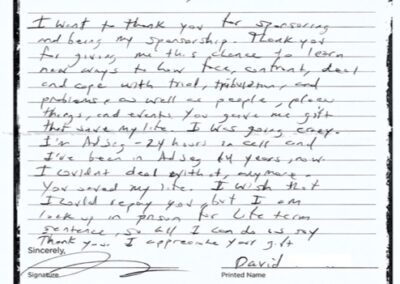 I want to thank you for sponsoring
and being my sponsorship. Thank you
for giving me this chance to learn
new ways to how face, confront, deal
and cope with trial, tribulation, and
problems, as well as people, places
things, and events. You gave me gift
that save my life. I was going crazy.
I'm Ad Seg - 24 hours in cell and
I've been in Ad Seg 14 years, now.
I couldn't deal with it, anymore.
You saved my life. I wish that
I could repay you, but I am
lock up in prison for life term
sentence, so all I can do is say
Thank you. I appreciate your gift
Sincerely,
David
Signature Printed Name